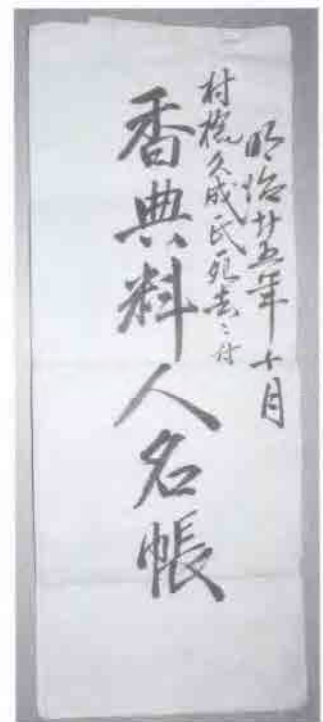 明治廿五年十月
村橋久成氏死去ニ付
香典料人名帳